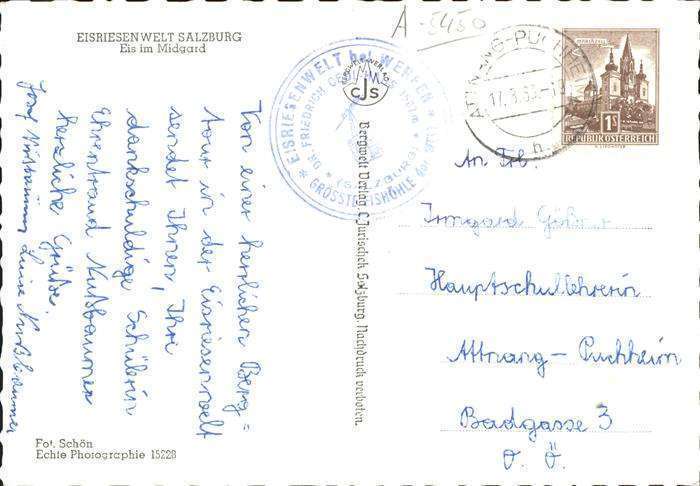 EISRIESENWELT SALZBURG
Eis im Midgard
A-5450
Von einer herrlichen Berg=
tour in der Eisriesenwelt
sendet Ihnen, Ihre
dankschuldige Schülerin
Ehrentraud Nußbaumer
herzliche Grüße.
Josef Luise Nußbaumer
Fot. Schön
Echte Photographie 15228
* EISRIESENWELT bei WERFEN *
DR. FRIEDRICH
(SALZBURG)
GRÖSSTE EISHÖHLE der
BERGWELTVERLAG
CJS
Bergwelt Verlag, C. Jurischek Salzburg. Nachdruck verboten.
ATTNANG-PUCHHEIM
17. 9. 63
h
1S
REPUBLIK ÖSTERREICH
An Frl.
Irmgard
Hauptschullehrerin
Attnang-Puchheim
Badgasse 3
O. Ö.